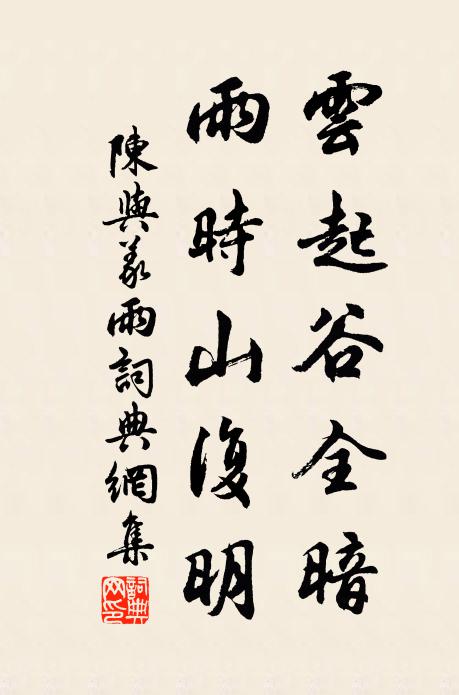 雲起谷全暗
雨時山復明
陳與義雨詞典網集
詞典網印